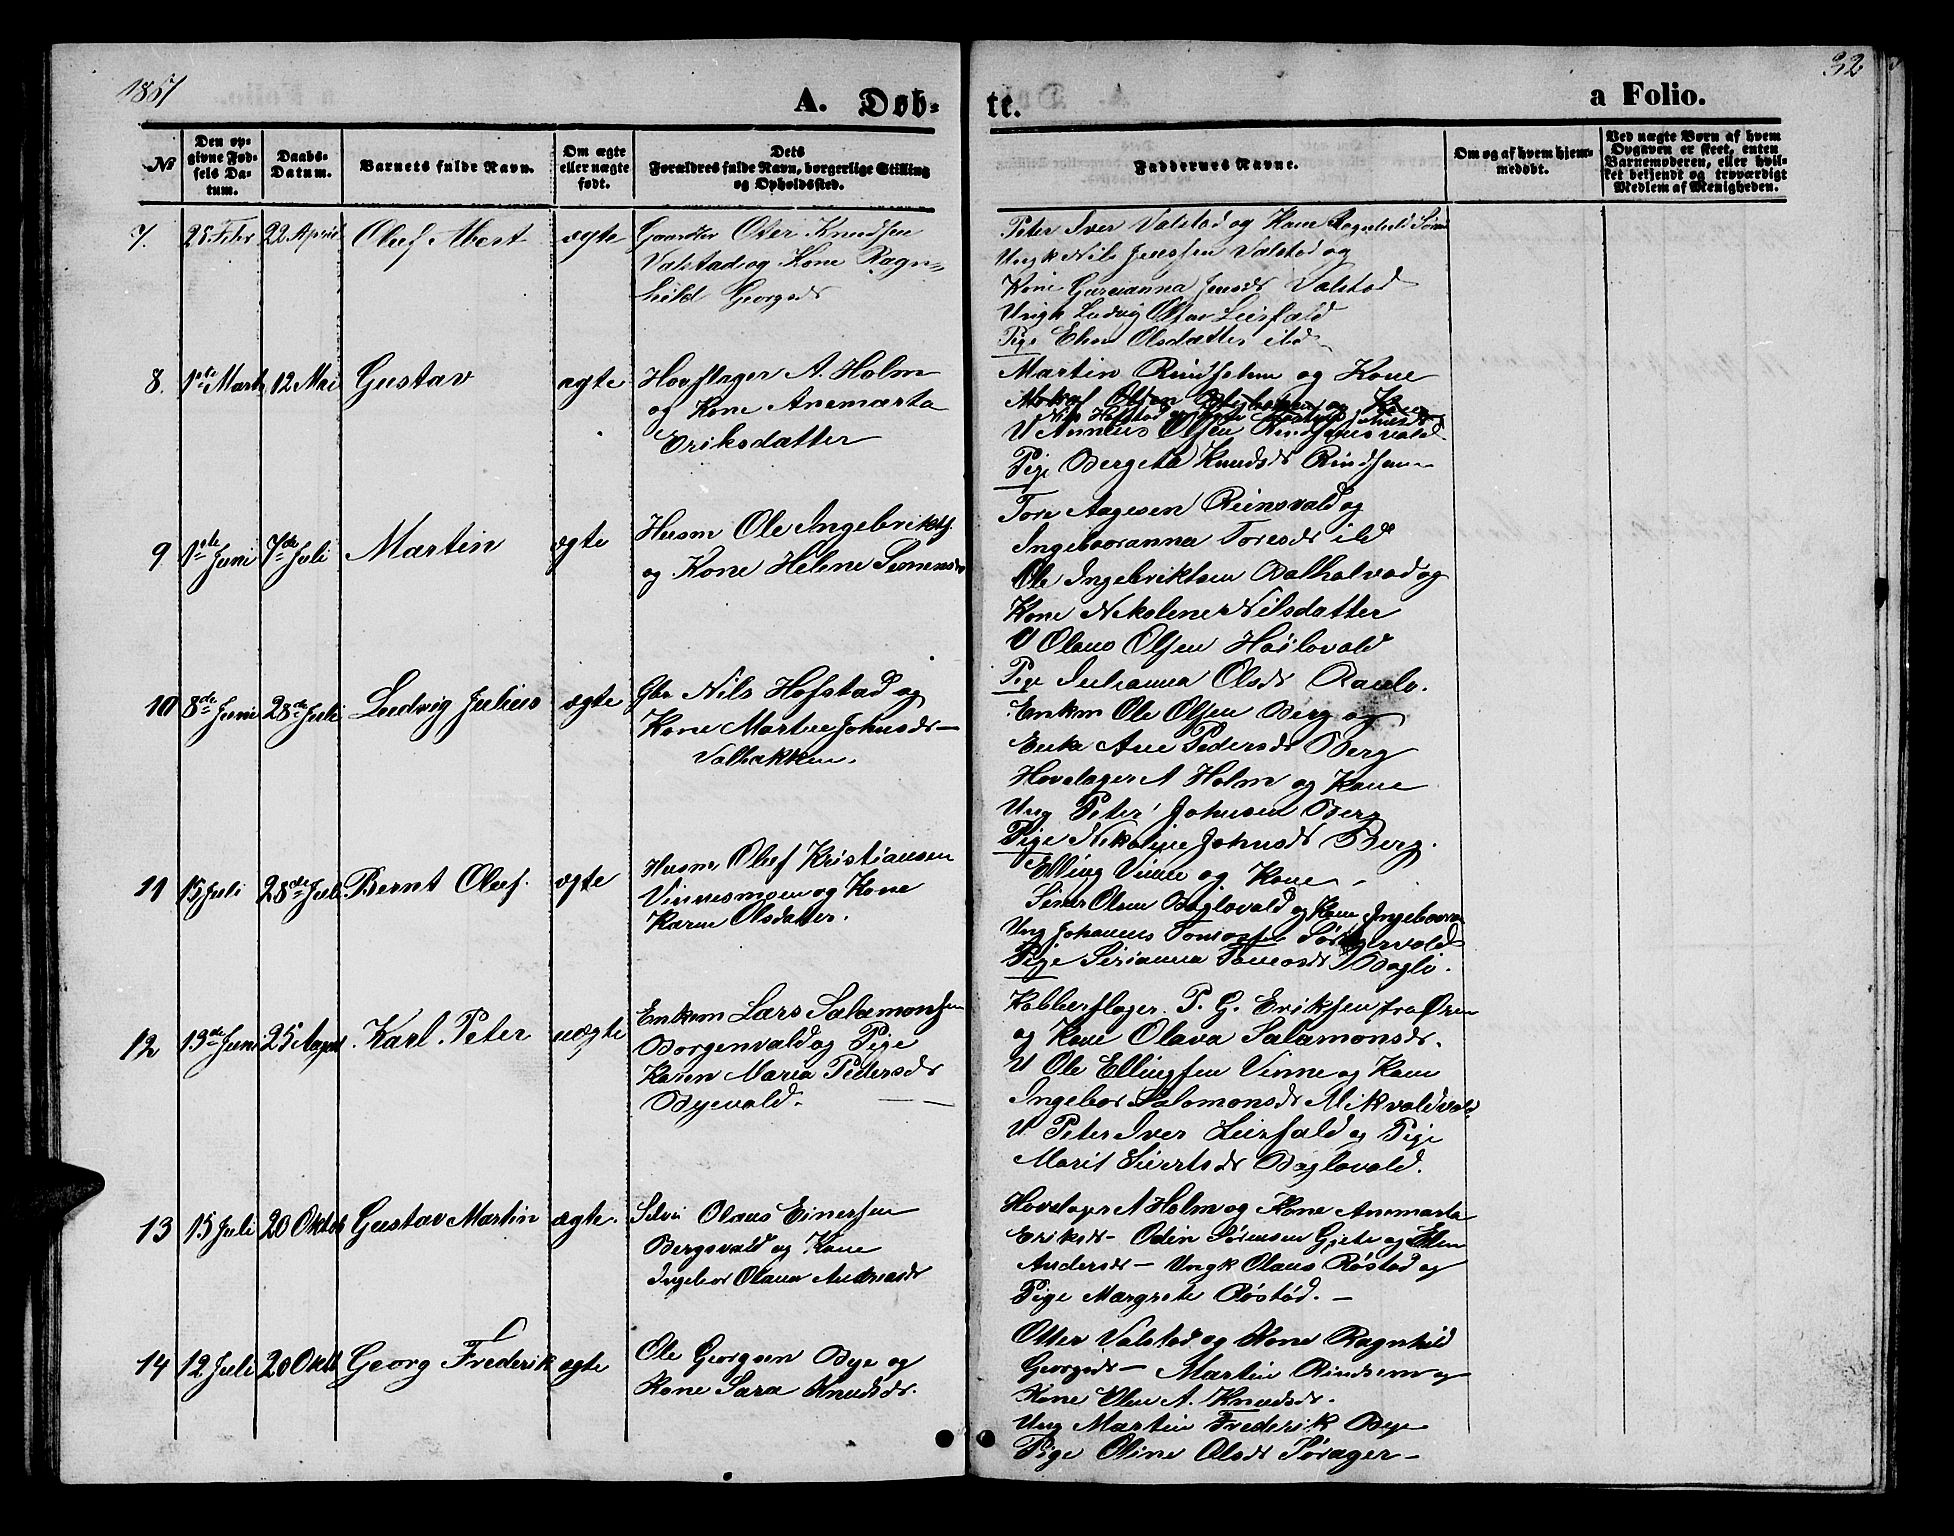 1867
A. Døb-
te.
a Folio.
32
No
Den op-
givne Fød-
sels Da-
tum.
Daabs-
Datum.
Barnets fulde Navn.
Om ægte
eller uægte
født.
Dets
Forældres fulde Navn, borgerlige Stilling
og Opholdssted.
Faddernes Navne.
Om og af hvem hjem-
medøbt.
Ved uægte Børn af hvem
Opgaven er skeet, enten
Barnemoderen, eller hvil-
ket bekjendt og troværdigt
Medlem af Menigheden.
7. 28 Febr 22 April Oluf Mart ægte
Knudsen
Valstad og Kone Ragn-
hild Georgsdr
Peter Iver Valstad og Kone
Ungk Nils Jenssen Valstad og
Kone Jensdr Valstad
Ungk Ludvig Leirfald
Pige Olsdatter ibd
8. 1ste Marts 12 Mai Gustav ægte
Hovslager A. Holm
og Kone Anemarta
Eriksdatter
Martin Rindsem og Kone
Nils Hofstad og
U Olsen
Pige Bergeta Knudsdr Rindsem
9 1ste Juni 7de Juli Martin ægte
Husm Ole Ingebrikts.
og Kone Helene
Tore Aagesen Reinsvald og
Ingeboranna Toresdr ibd
Ole Ingebriktsen Balhalvad og
Kone Nekolene Nilsdatter
U Olaus Olsen Høilovald
Pige Julianna Olsdr Raulo.
10 8de Juni 28de Juli Ludvig Julius ægte
Gbr Nils Hofstad og
Kone Martee Johnsdr
Valbakken.
Enkm Ole Olsen Berg og
Enke Ane Pedersdr Berg
Hovslager A Holm og Kone
Ung Peter Johnsen Berg
Pige Nekoline Johnsdr Berg.
11 15 Juli 28de Juli Bernt Oluf. ægte
Husm Oluf Kristiansen
Vinnesmoen og Kone
Karen Olsdatter.
Elling Vinne og Kone
Olsen Baglovald og Kone Ingeboran
Ung Johannes
Pige Serianna Baglo.
12 13de Juni 25 August Karl Peter uægte
Enkem Lars Salamonsen
Borgenvald og Pige
Karen Maria Pedersdr
Byevald.
Kobberslager P. G. Eriksen fra Øren
og Kone Olava Salamonsdr.
U Ole Ellingsen Vinne og Kone
Ingebor Salomonsdr Mikvoldvald
U Peter Iver Leirfald og Pige
Marit Siertsdr Baglovald.
13 15 Juli 20 Oktob Gustav Martin ægte.
Selvei Olaus Einersen
Bergsvald og Kone
Ingebor Olana Andreasdr
Hovslager A Holm og Kone Anemarta
Eriksdr - Odin Sørensen Gjete og Elen
Andersdr - Ungk Olaus Røstad og
Pige Margrete Røstad.
14 12 Juli 20 Oktb Georg Frederik ægte
Ole Georgsen Bye og
Kone Sara Knudsdr.
Otter Valstad og Kone Ragnhild
Georgsdr - Martin Rindsem og
Kone Elen A. Knudsdr.
Ung Martin Frederik Bye
Pige Oline Olsdr Sørager